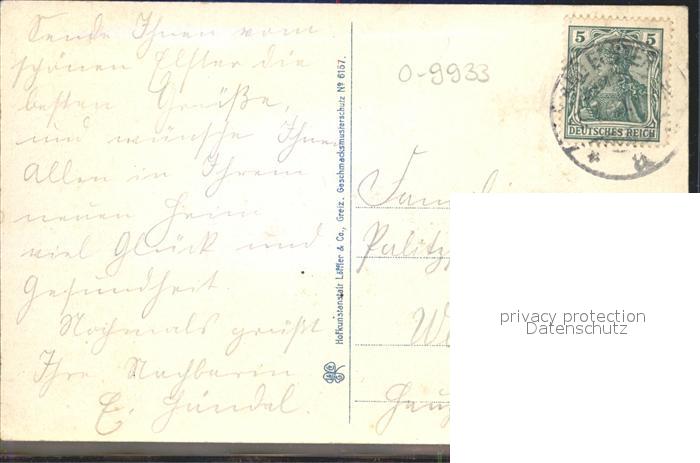 Sende Ihnen vom
schönen Elster die
besten Grüße,
und wünsche Ihnen
Allen in Ihrem
neuen Heim
viel Glück und
Gesundheit.
Nochmals grüßt
Ihre Nachbarin
E. Händel.
Hofkunstanstalt Löffler & Co., Greiz. Geschmacksmusterschutz No 6157.
0-9933
5 5
DEUTSCHES REICH
Famili
Palitz
We
privacy protection
Datenschutz